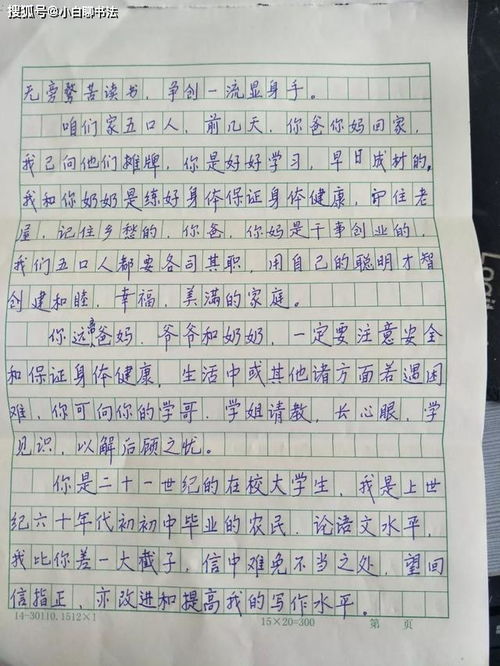 搜狐号@小白聊书法
无旁骛苦读书，争创一流显身手。
咱们家五口人，前几天，你爸你妈回家，
我已向他们摊牌，你是好好学习，早日成材的，
我和你奶奶是练好身体保证身体健康，留住老
屋，记住乡愁的，你爸，你妈是干事创业的，
我们五口人都要各司其职，用自己的聪明才智
创建和睦，幸福，美满的家庭。
你远离爸妈，爷爷和奶奶，一定要注意安全
和保证身体健康，生活中或其他诸方面若遇困
难，你可向你的学哥，学姐请教，长心眼，学
见识，以解后顾之忧。
你是二十一世纪的在校大学生，我是上世
纪六十年代初初中毕业的农民，论语文水平，
我比你差一大截子，信中难免不当之处，望回
信指正，亦改进和提高我的写作水平。
14-30110.1512×1 15×20=300 第 页
Logi